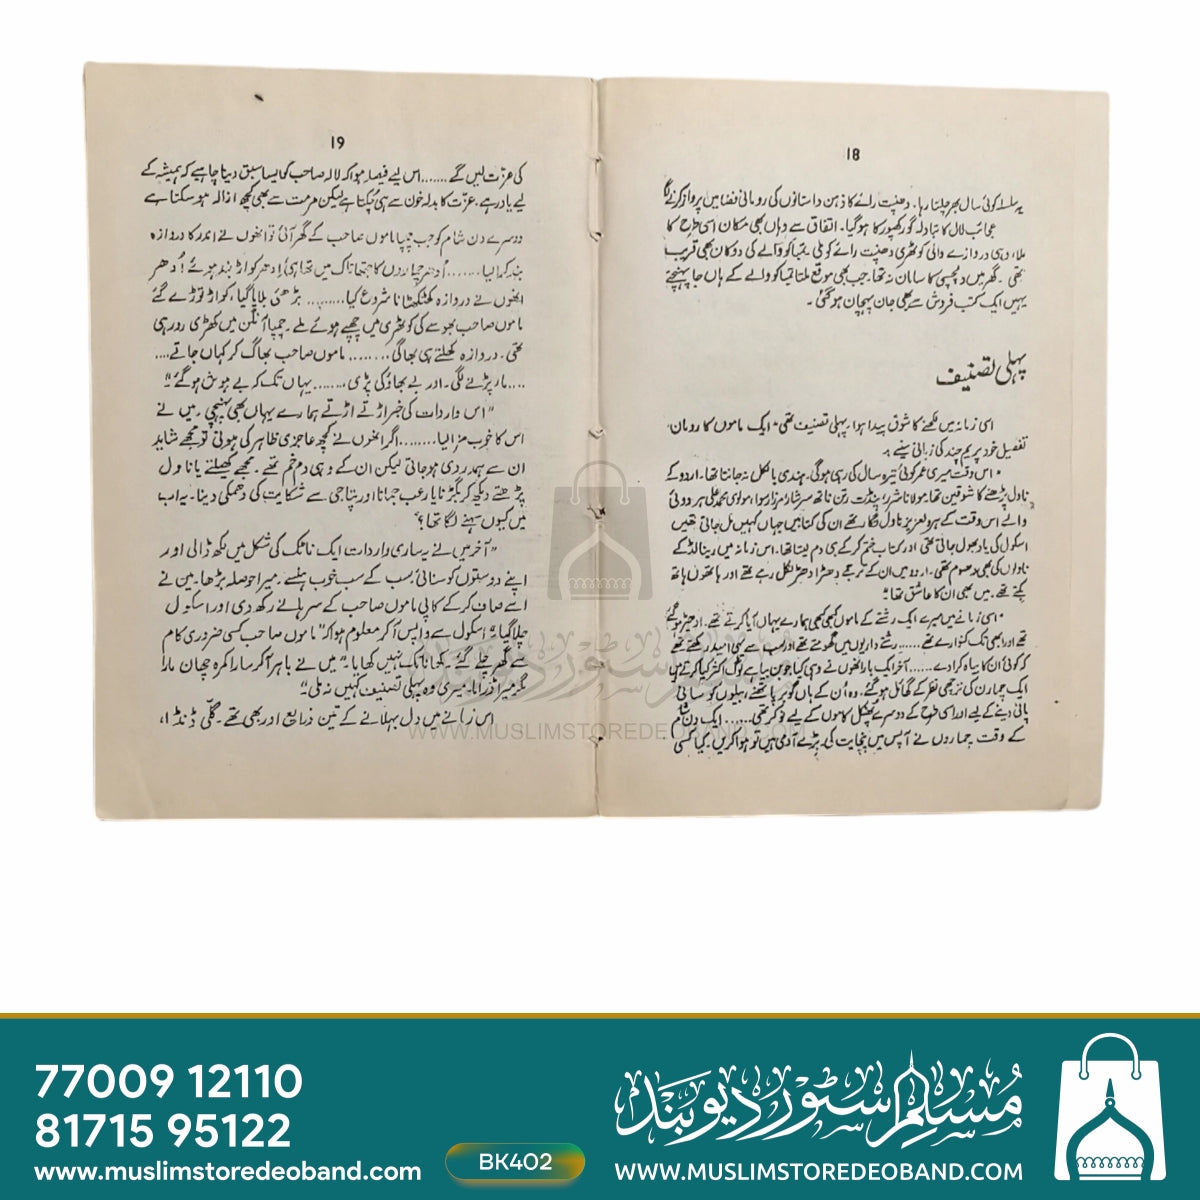 18
یہ سلسلہ کوئی سال بھر چلتا رہا۔ دھنپت رائے کا ذہن داستانوں کی رومانی فضا میں پرواز کرنے لگا
عجائب لال کا تبادلہ گورکھپور کا ہو گیا۔ اتفاق سے وہاں بھی مکان اسی طرح کا
ملا، وہی دروازے والی کوٹھری دھنپت رائے کو ملی۔ تمباکو والے کی دوکان بھی قریب
تھی۔ گھر میں دلچسپی کا سامان نہ تھا۔ جب بھی موقع ملتا تمباکو والے کے ہاں جا پہنچتے
یہیں ایک کتب فروش سے بھی جان پہچان ہو گئی۔
پہلی تصنیف
اسی زمانہ میں لکھنے کا شوق پیدا ہوا۔ پہلی تصنیف تھی "ایک ماموں کا رومان۔
تفصیل خود پریم چند کی زبانی سنیے۔
"اس وقت میری عمر کوئی تیرہ سال کی رہی ہوگی۔ ہندی بالکل نہ جانتا تھا۔ اردو کے
ناول پڑھنے کا شوقین تھا۔ مولانا شرر، پنڈت رتن ناتھ سرشار، مرزا رسوا، مولوی محمد علی ہردوئی
والے اس وقت کے ہر دلعزیز ناول نگار تھے ان کی کتابیں جہاں کہیں مل جاتی تھیں
اسکول کی یاد بھول جاتی تھی اور کتاب ختم کر کے ہی دم لیتا تھا۔ اس زمانہ میں رینالڈ کے
ناولوں کی بھی دھوم تھی۔ اردو میں ان کے ترجمے دھڑا دھڑ نکل رہے تھے اور ہاتھوں ہاتھ
بکتے تھے۔ میں بھی ان کا عاشق تھا"
"اسی زمانے میں میرے ایک رشتے کے ماموں کبھی کبھی ہمارے یہاں آیا کرتے تھے۔ ادھیڑ ہو گئے
تھے اور ابھی تک کنوارے تھے...... رشتے داریوں میں گھومتے تھے اور سب سے یہی امید رکھتے تھے
کہ کوئی ان کا بیاہ کرا دے...... آخر ایک بار انھوں نے وہی کیا جو بن بیاہے لوگ اکثر کیا کرتے ہیں
ایک چمارن کی ترچھی نظر کے گھائل ہو گئے۔ وہ اُن کے ہاں گوبر پاتھنے، بیلوں کو سانی
پانی دینے کے لیے اور اسی طرح کے دوسرے چٹکل کاموں کے لیے نوکر تھی...... ایک دن شام
کے وقت چماروں نے آپس میں پنچایت کی۔ بڑے آدمی ہیں تو ہوا کریں۔ کیا کسی
19
کی عزت لیں گے....... اس لیے فیصلہ ہوا کہ لالہ صاحب کو ایسا سبق دینا چاہیے کہ ہمیشہ کے
لیے یاد رہے۔ عزت کا بدلہ خون سے ہی چکتا ہے لیکن مرمت سے بھی کچھ ازالہ ہو سکتا ہے
دوسرے دن شام کو جب چمپا ماموں صاحب کے گھر آئی تو انھوں نے اندر کا دروازہ
بند کر لیا....... اُدھر چماروں کا جتھا تاک میں تھا ہی! ادھر کواڑ بند ہوئے! اُدھر
انھوں نے دروازہ کھٹکھٹانا شروع کیا......... بڑھئی بلایا گیا، کواڑ توڑے گئے
ماموں صاحب بھوسے کی کوٹھری میں چھپے ہوئے ملے۔ چمپا آنگن میں کھڑی رو رہی
تھی۔ دروازہ کھلتے ہی بھاگی........ ماموں صاحب بھاگ کر کہاں جاتے....
.... مار پڑنے لگی۔ اور بے بھاؤ کی پڑی،....... یہاں تک کہ بے ہوش ہو گئے"
"اس واردات کی خبر اڑتے اڑتے ہمارے یہاں بھی پہنچی۔ میں نے
اس کا خوب مزا لیا........ اگر انھوں نے کچھ عاجزی ظاہر کی ہوتی تو مجھے شاید
ان سے ہمدردی ہو جاتی لیکن ان کے وہی دم خم تھے۔ مجھے کھیلتے یا ناول
پڑھتے دیکھ کر بگڑنا یا رعب جمانا اور پتاجی سے شکایت کی دھمکی دینا۔ یہ اب
میں کیوں سہنے لگا تھا؟"
"آخر میں نے یہ ساری واردات ایک ناٹک کی شکل میں لکھ ڈالی اور
اپنے دوستوں کو سنائی سب کے سب خوب ہنسے۔ میرا حوصلہ بڑھا۔ میں نے
اسے صاف کر کے کاپی ماموں صاحب کے سرہانے رکھ دی اور اسکول
چلا گیا۔ اسکول سے واپس آ کر معلوم ہوا کہ "ماموں صاحب کسی ضروری کام
سے گھر چلے گئے۔ کھانا تک نہیں کھایا۔" میں نے باہر آ کر سارا کمرہ چھان مارا
مگر میرا ڈراما۔ میری وہ پہلی تصنیف کہیں نہ ملی۔"
اس زمانے میں دل بہلانے کے تین ذرایع اور بھی تھے۔ گلی ڈنڈا،
WWW.MUSLIMSTOREDEOBAND.COM
77009 12110
81715 95122
www.muslimstoredeoband.com
BK402
مسلم سٹور دیوبند
WWW.MUSLIMSTOREDEOBAND.COM